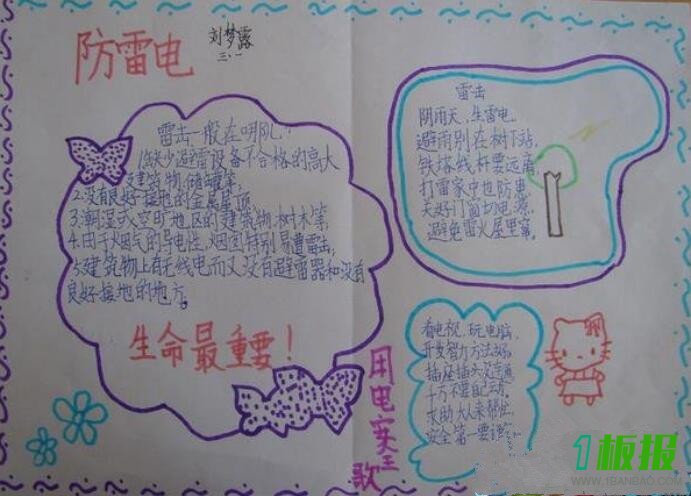 防雷电
刘梦露
三、一
雷击一般在哪儿?
1.缺少避雷设备不合格的高大
建筑物,储罐等
2.没有良好接地的金属屋顶
3.潮湿或空旷地区的建筑物,树木等
4.由于烟气的导电性,烟囱特别易遭雷击;
5.建筑物上有无线电而又没有避雷器和没有
良好接地的地方。
生命最重要!
雷击
阴雨天,生雷电,
避雨别在树下站,
铁塔线杆要远离,
打雷家中也防患,
关好门窗切电源,
避免雷火屋里窜。
用电安全歌
看电视,玩电脑,
开发智力方法妙。
插座插头没查通
千万不要自己动。
求助大人来帮忙
安全第一要
1板报
WWW.1BANBAO.COM